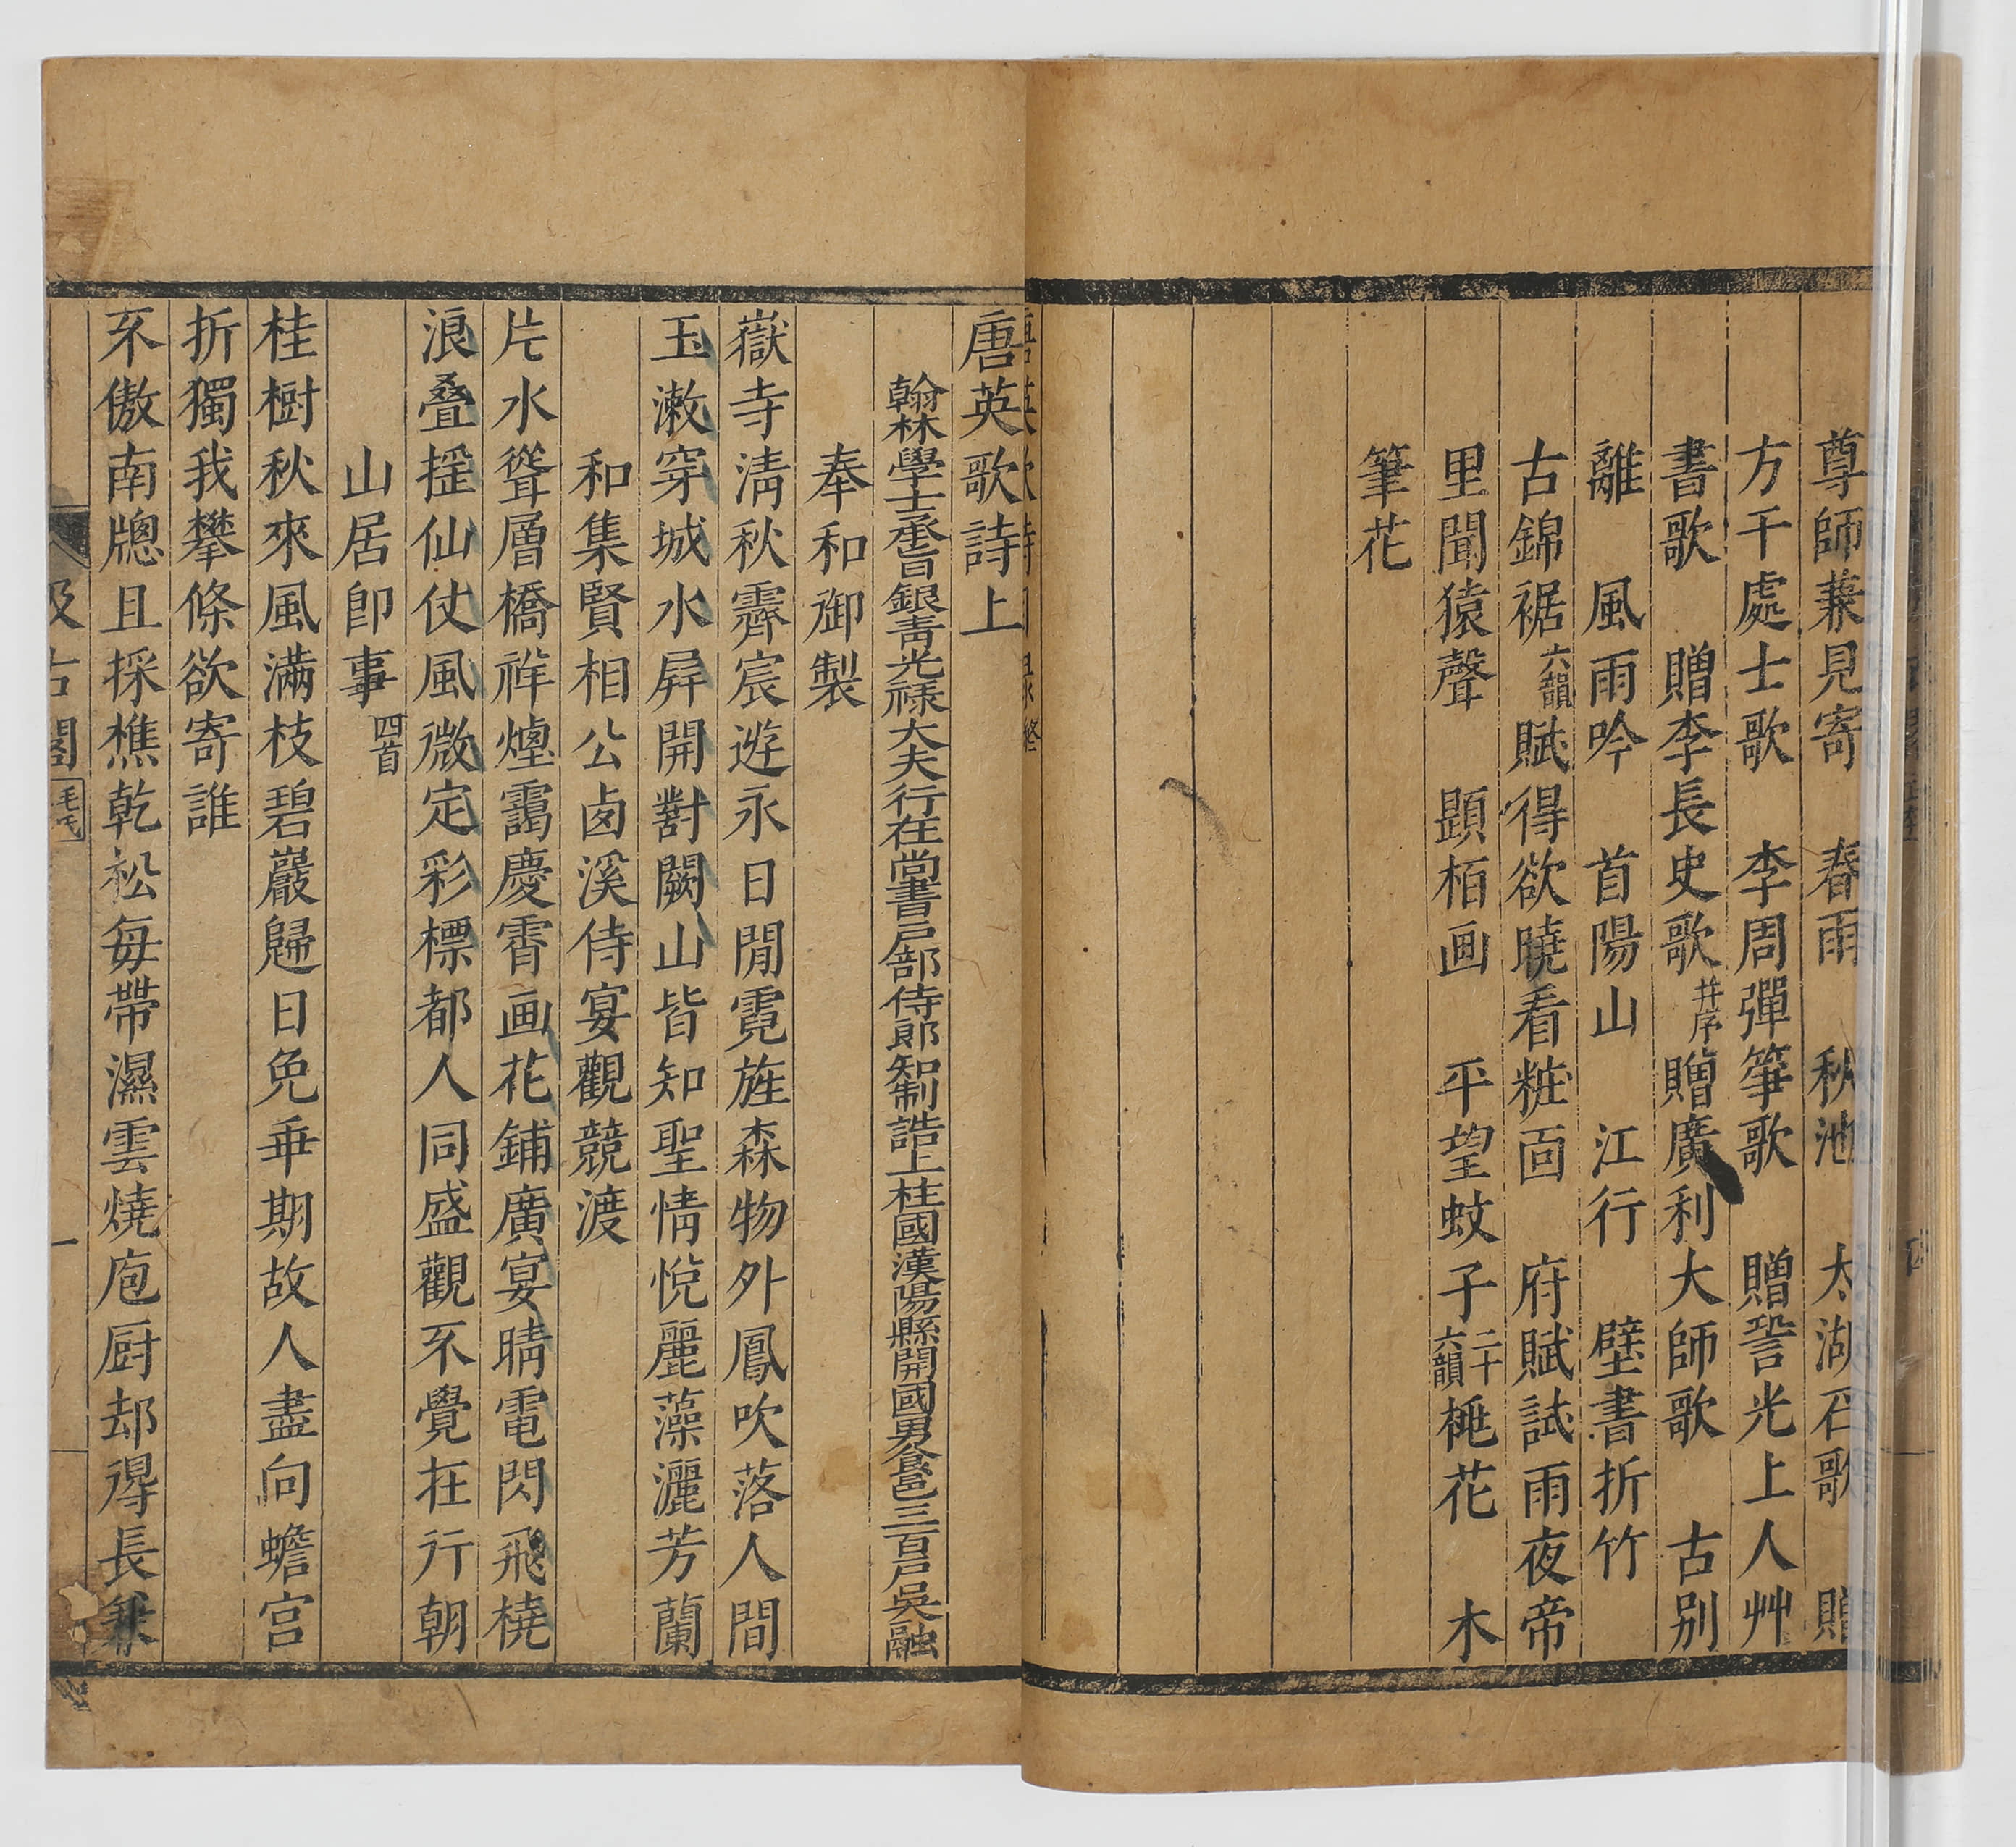 尊師蒹見寄　春雨　秋池　太湖石歌　贈
方干處士歌　李周彈箏歌　贈䛒光上人艸
書歌　贈李長史歌并序　贈廣利大師歌　古別
離　風雨吟　首陽山　江行　壁書折竹
古錦裾六韻　賦得欲曉看粧靣　府賦試雨夜帝
里聞猿聲　題栢画　平望蚊子二十六韻　桃花　木
筆花
唐英歌詩上
翰林學士承旨銀青光祿大夫行在尚書戶部侍郎知制誥上柱國漢陽縣開國男食邑三百戶吳融
奉和御製
嶽寺淸秋霽宸遊永日閒霓旌森物外鳳吹落人間
玉漱穿城水屏開對闕山皆知聖情悅麗藻灑芳蘭
和集賢相公西溪侍宴觀競渡
片水聳層橋祥煙靄慶霄画花鋪廣宴晴電閃飛橈
浪叠搖仙仗風微定彩標都人同盛觀不覺在行朝
山居卽事四首
桂樹秋來風滿枝碧巖歸日免乖期故人盡向蟾宮
折獨我攀條欲寄誰
不傲南牕且採樵乾松每帶濕雲燒庖厨却得長兼
汲古閣 毛氏
一